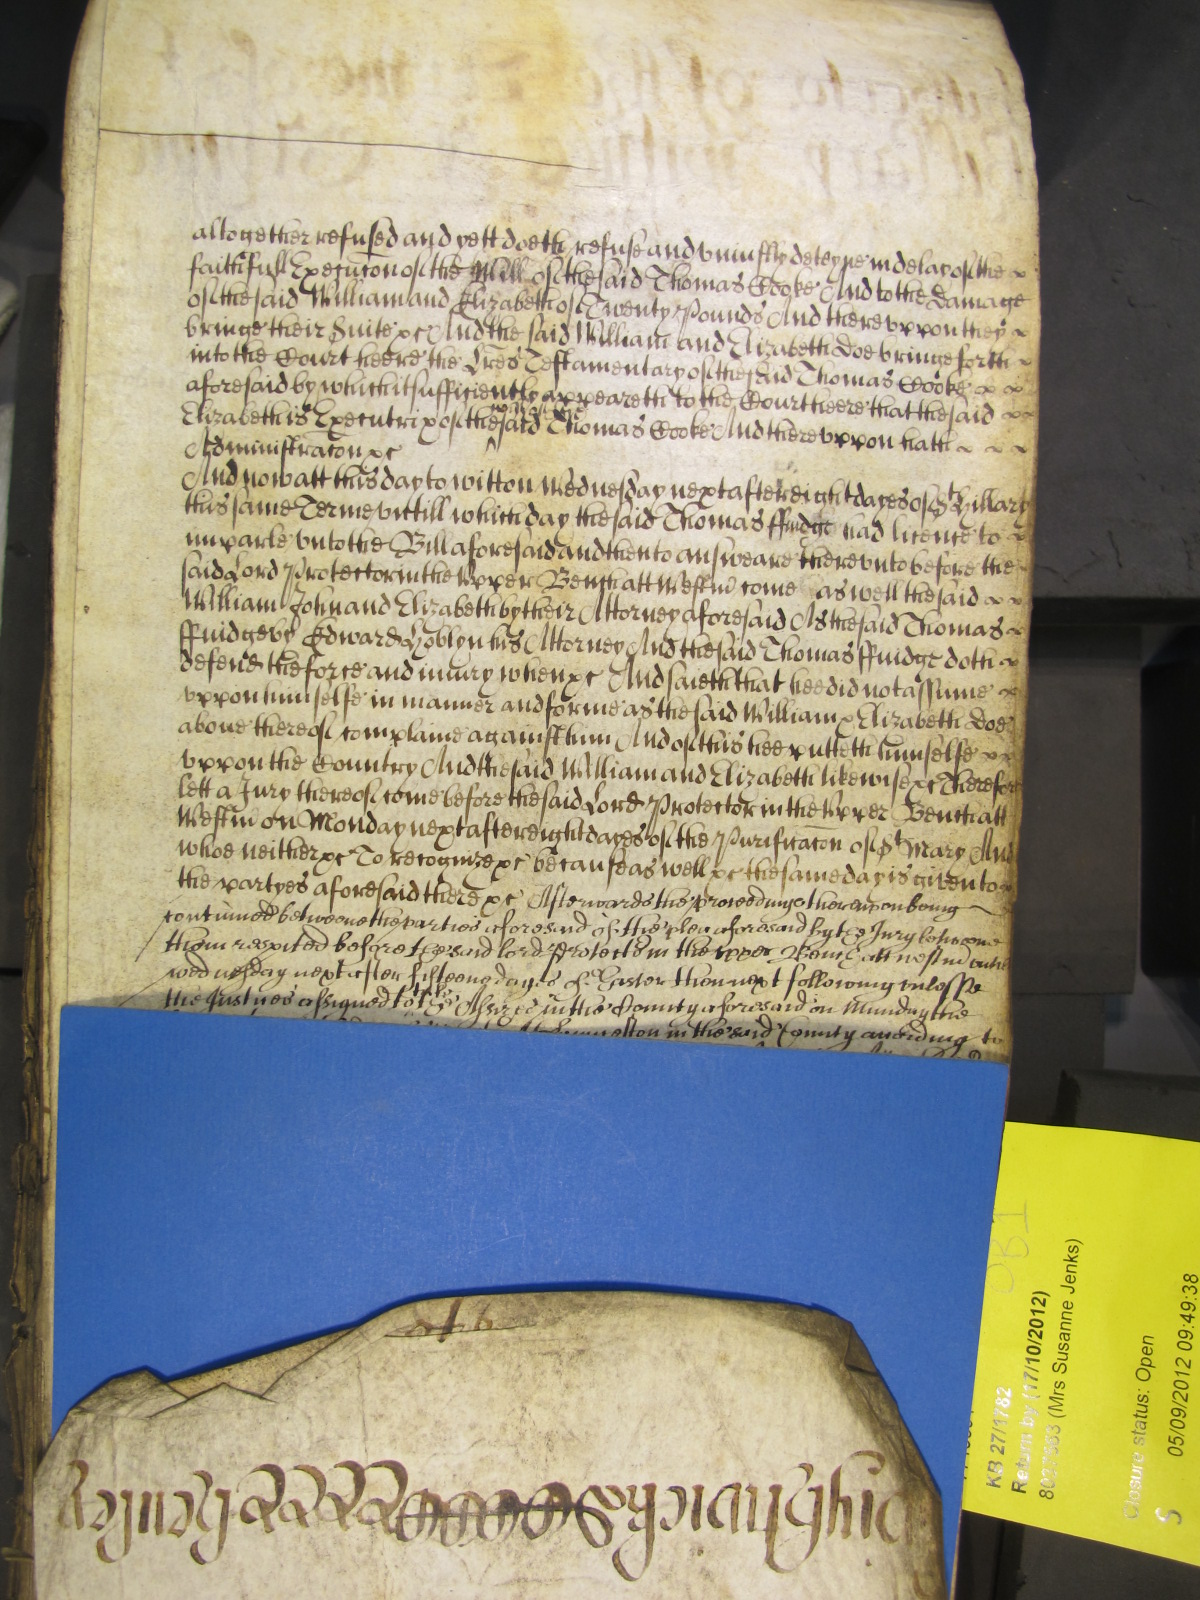 altogether refused and yett doeth refuse and vniustly deteyne in delay of the
faithfull Execucon of the Will of the said Thomas Cooke And to the damage
of the said William and Elizabeth of Twenty Pounds And therevppon they
bringe their Suite &c And the said William and Elizabeth doe bringe forth
into the Court heere the Lres Testamentary of the said Thomas Cooke
aforesaid by which it sufficiently appeareth to the Court heere that the said
Elizabeth is Executrix of the said Thomas Cooke And therevppon hath
Administracon &c
And now att this day to witt on Wednesday next after eight dayes of St Hillary
this same Terme vntill which day the said Thomas ffudge had licence to
imparle vnto the Bill aforesaid and then to answeare therevnto before the
said Lord Protector in the Vpper Bench att Westm come as well the said
William John and Elizabeth by their Attorney aforesaid As the said Thomas
ffuidge by Edward Hoblyn his Attorney And the said Thomas ffuidge doth
defend the force and iniury when &c And saieth that hee did not assume
vppon himselfe in manner and forme as the said William & Elizabeth doe
aboue thereof complaine against him And of this hee putteth himselfe
vppon the Country And the said William and Elizabeth likewise &c Therefore
lett a Jury thereof come before the said Lord Protector in the Vpper Bench att
Westm on Monday next after eight dayes of the Purificacon of St Mary And
whoe neither &c To recognize &c because as well &c the same day is given to
the partyes aforesaid there &c Afterwards the proceedings therevpon being
continued betweene the parties aforesaid of the plea aforesaid by the Jury betweene
them respited before the said lord Protector in the vpper Bench att westm vntill
wednesday next after fifteene dayes of Easter then next following vnlesse
the Justices assigned to the Assizes in the County aforesaid on Munday the
in the said County according to
KB 27/1782
Return by (17/10/2012)
(Mrs Susanne Jenks)
Closure status: Open
S 05/09/2012 09:49:38